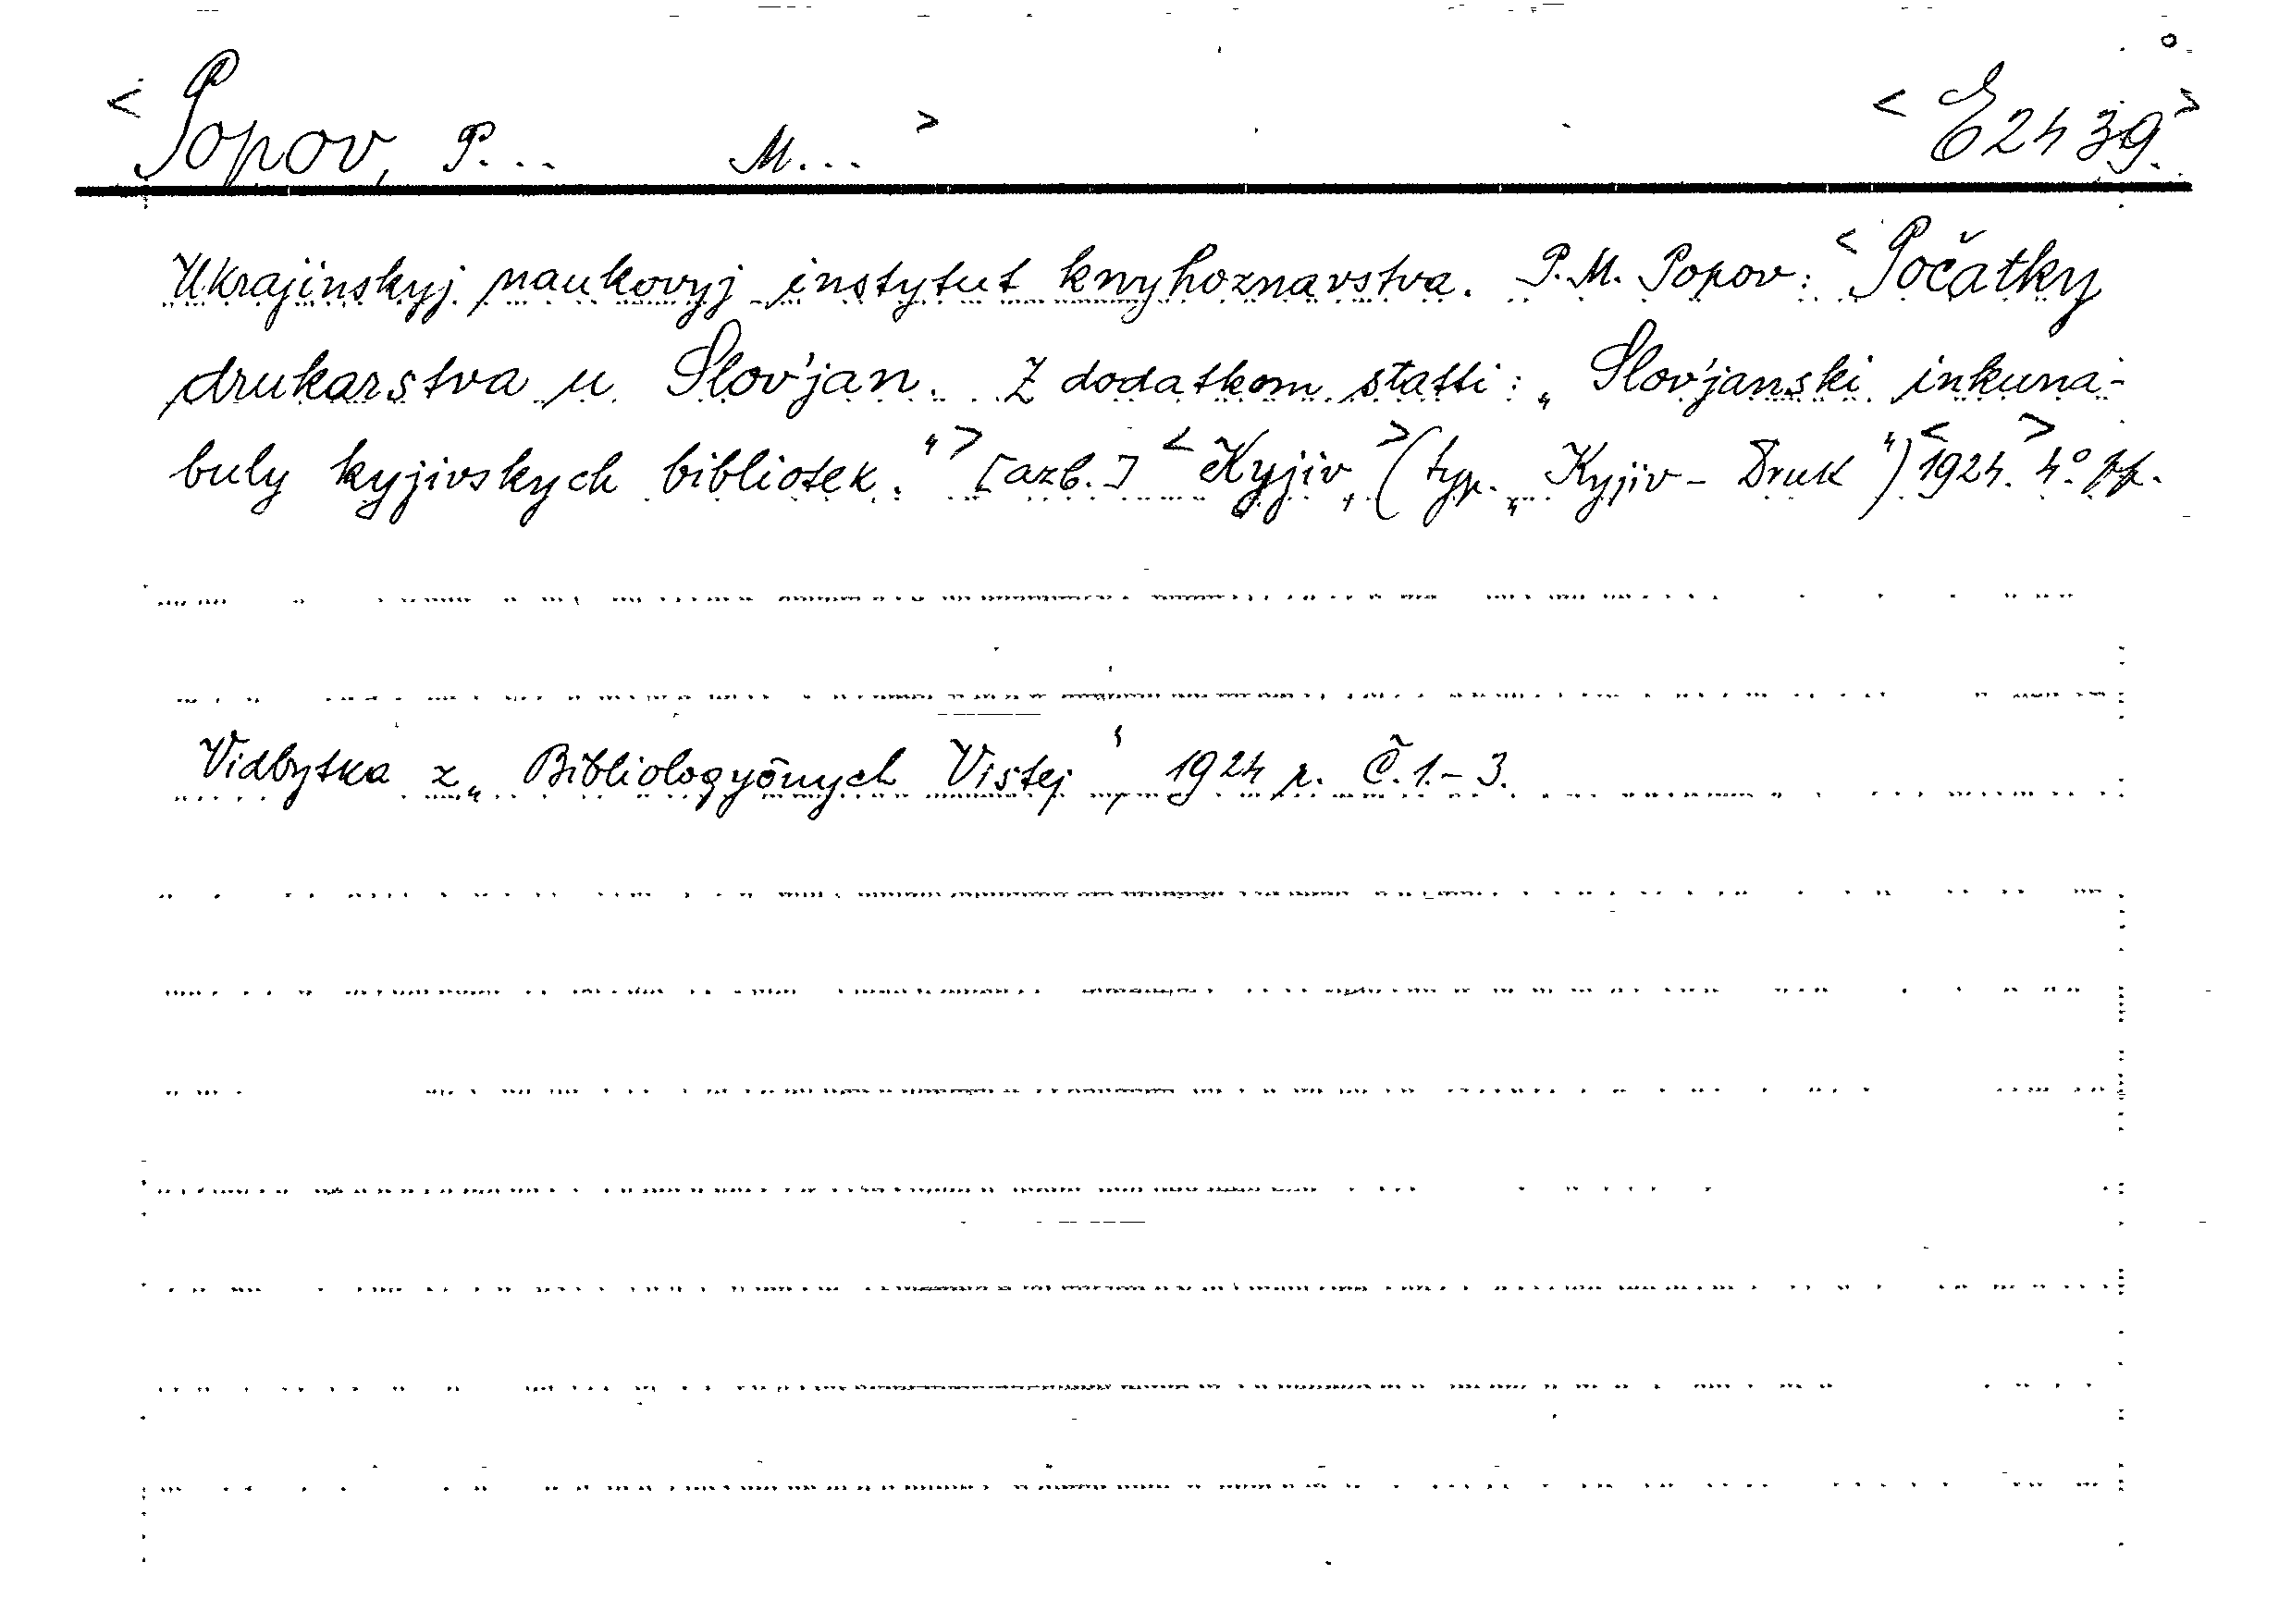 <Popov, P... M...> <E 2439.>
Ukrajinskyj naukovyj instytut knyhoznavstva. P.M. Popov: <Počatky
drukarstva u Slov'jan. Z dodatkom statti: „Slov'janski inkuna-
buly kyjivskych bibliotek."> [azb.] <Kyjiv,> (typ. „Kyjiv - Druk") <1924.> 4°.
Vidbytka z „Bibliologyčnych Vistej", 1924 r. Č. 1.-3.